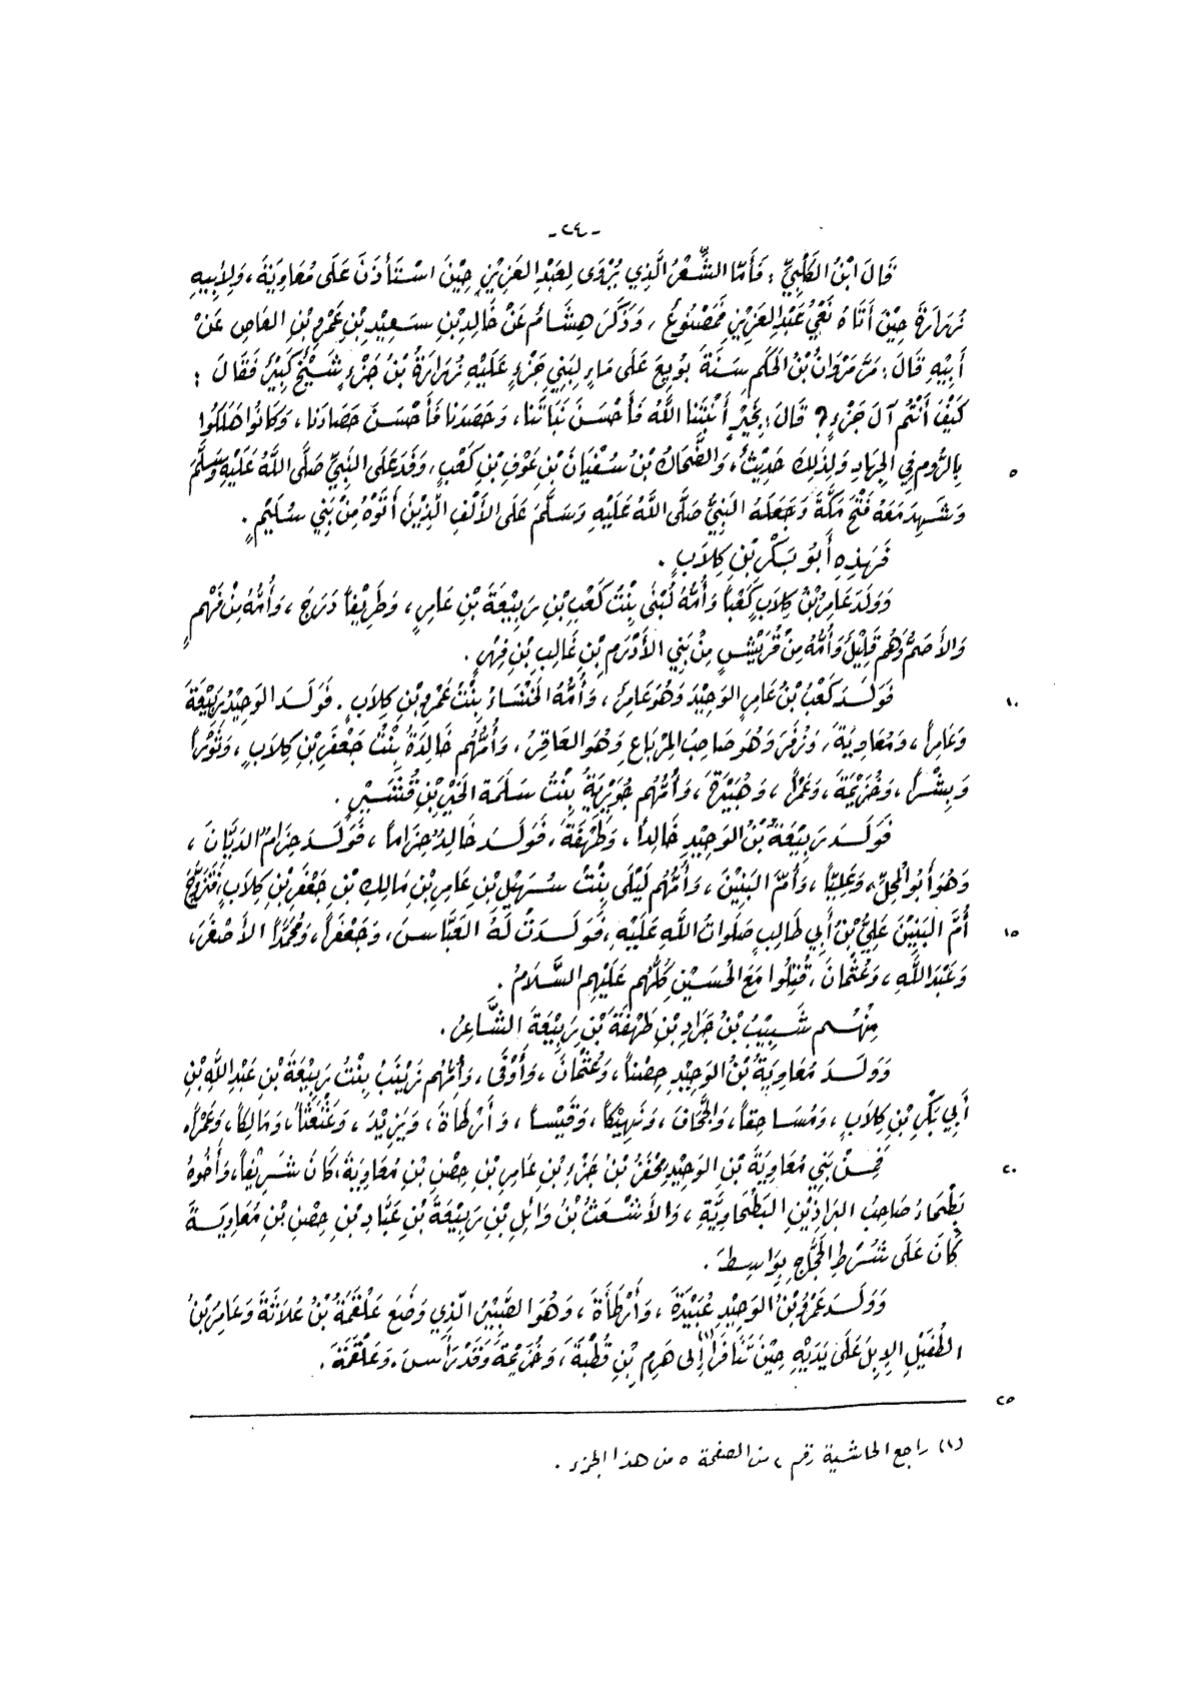 -٢٤-
قَالَ ابْنُ الكَلْبِيِّ : فَأَمَّا الشِّعْرُ الَّذِي يُرْوَى لِعَبْدِ العَزِيْزِ حِيْنَ اسْتَأْذَنَ عَلَى مُعَاوِيَةَ ، وَلِأَبِيهِ
زُرَارَةَ حِيْنَ أَتَاهُ نَعْيُ عَبْدِ العَزِيْزِ فَمَصْنُوعٌ ، وَذَكَرَ هِشَامٌ عَنْ خَالِدِ بْنِ سَعِيْدِ بْنِ عَمْرِو بْنِ العَاصِ عَنْ
أَبِيْهِ قَالَ : مَرَّ مَرْوَانُ بْنُ الحَكَمِ سَنَةَ بُويِعَ عَلَى مَاءٍ لِبَنِي جَزْءٍ عَلَيْهِ زُرَارَةُ بْنُ جَزْءٍ شَيْخٌ كَبِيْرٌ فَقَالَ :
كَيْفَ أَنْتُم آلَ جَزْءٍ ؟ قَالَ : بِخَيْرٍ أَنْبَتَنَا اللَّهُ فَأَحْسَنَ نَبَاتَنَا ، وَحَصَدَنَا فَأَحْسَنَ حَصَادَنَا ، وَكَانُوا هَلَكُوا
بِالرُّومِ فِي الجِهَادِ وَلِذَلِكَ حَدِيْثٌ ، وَالضَّحَّاكُ بْنُ سُفْيَانَ بْنِ عَوْفِ بْنِ كَعْبٍ ، وَفَدَ عَلَى النَّبِيِّ صَلَّى اللَّهُ عَلَيْهِ وَسَلَّمَ ٥
وَشَهِدَ مَعَهُ فَتْحَ مَكَّةَ وَجَعَلَهُ النَّبِيُّ صَلَّى اللَّهُ عَلَيْهِ وَسَلَّمَ عَلَى الأَلْفِ الَّذِيْنَ أَتَوْهُ مِنْ بَنِي سُلَيْمٍ .
فَهَذِهِ أَبُو بَكْرِ بْنِ كِلَابٍ .
وَوَلَدَ عَامِرُ بْنُ كِلَابٍ كَعْباً وَأُمُّهُ لُبْنَى بِنْتُ كَعْبِ بْنِ رَبِيْعَةَ بْنِ عَامِرٍ ، وَطَرِيْفاً دَرَجَ ، وَأُمُّهُ مِنْ فَهْمٍ
وَالأَصَمَّ وَهُم قَلِيْلٌ وَأُمُّهُ مِنْ قُرَيْشٍ مِنْ بَنِي الأَدْرَمِ بْنِ غَالِبِ بْنِ فِهْرٍ .
فَوَلَدَ كَعْبُ بْنُ عَامِرٍ الوَحِيْدَ وَهُوَ عَامِرٌ ، وَأُمُّهُ الخَنْسَاءُ بِنْتُ عَمْرِو بْنِ كِلَابٍ . فَوَلَدَ الوَحِيْدُ رَبِيْعَةَ ١٠
وَعَامِراً ، وَمُعَاوِيَةَ ، وَزُفَرَ وَهُوَ صَاحِبُ المِرْبَاعِ وَهُوَ العَاقِرُ ، وَأُمُّهُم خَالِدَةُ بِنْتُ جَعْفَرِ بْنِ كِلَابٍ ، وَثَوْراً
وَبِشْراً ، وَخُزَيْمَةَ ، وَعَمْراً ، وَهُبَيْدَةَ ، وَأُمُّهُم جُوَيْرِيَةُ بِنْتُ سَلَمَةَ الخَيْرِ بْنِ قُشَيْرٍ .
فَوَلَدَ رَبِيْعَةُ بْنُ الوَحِيْدِ خَالِداً ، وَطَهْفَةَ ، فَوَلَدَ خَالِدٌ حِزَاماً ، فَوَلَدَ حِزَامٌ الدَّيَّانَ ،
وَهُوَ أَبُو المُحِلِّ ، وَعَلِيّاً ، وَأُمَّ البَنِيْنَ ، وَأُمُّهُم لَيْلَى بِنْتُ سُهَيْلِ بْنِ عَامِرِ بْنِ مَالِكِ بْنِ جَعْفَرِ بْنِ كِلَابٍ ، فَتَزَوَّجَ
أُمَّ البَنِيْنَ عَلِيُّ بْنُ أَبِي طَالِبٍ صَلَوَاتُ اللَّهِ عَلَيْهِ ، فَوَلَدَتْ لَهُ العَبَّاسَ ، وَجَعْفَراً ، وَمُحَمَّداً الأَصْغَرَ ، ١٥
وَعَبْدَ اللَّهِ ، وَعُثْمَانَ ، قُتِلُوا مَعَ الحُسَيْنِ كُلُّهُم عَلَيْهِم السَّلَامُ .
مِنْهُم شَبِيْبُ بْنُ جَرَادِ بْنِ طَهْفَةَ بْنِ رَبِيْعَةَ الشَّاعِرُ .
وَوَلَدَ مُعَاوِيَةُ بْنُ الوَحِيْدِ حِصْناً ، وَعُثْمَانَ ، وَأَوْفَى ، وَأُمُّهُم زَيْنَبُ بِنْتُ رَبِيْعَةَ بْنِ عَبْدِ اللَّهِ بْنِ
أَبِي بَكْرِ بْنِ كِلَابٍ ، وَمُسَاحِقاً ، وَالجَحَّافَ ، وَنَهِيْكاً ، وَقَيْساً ، وَأَرْطَاةَ ، وَيَزِيْدَ ، وَعَثْعَثاً ، وَمَالِكاً ، وَعَمْراً .
فَمِنْ بَنِي مُعَاوِيَةَ بْنِ الوَحِيْدِ مُحْرِزُ بْنُ جَزْءِ بْنِ عَامِرِ بْنِ حِصْنِ بْنِ مُعَاوِيَةَ ، كَانَ شَرِيْفاً ، وَأَخُوهُ ٢٠
بَطْحَاءُ صَاحِبُ البَرَاذِيْنِ البَطْحَاوِيَّةِ ، وَالأَشْعَثُ بْنُ وَائِلِ بْنِ رَبِيْعَةَ بْنِ عَبَّادِ بْنِ حِصْنِ بْنِ مُعَاوِيَةَ
كَانَ عَلَى شُرَطِ الحَجَّاجِ بِوَاسِطَ .
وَوَلَدَ عَمْرُو بْنُ الوَحِيْدِ عُبَيْدَةَ ، وَأَرْطَأَةَ ، وَهُوَ الضَّبِيْرُ الَّذِي وَضَعَ عَلْقَمَةُ بْنُ عُلَاثَةَ وَعَامِرُ بْنُ
الطُّفَيْلِ الإِبِلَ عَلَى يَدَيْهِ حِيْنَ تَنَافَرَا (١) إِلَى هَرِمِ بْنِ قُطْبَةَ ، وَخُزَيْمَةَ وَقَدْ رَأَسَ ، وَعَلْقَمَةَ .
٢٥
(١) راجع الحاشية رقم ٢ من الصفحة ٥ من هذا الجزء .